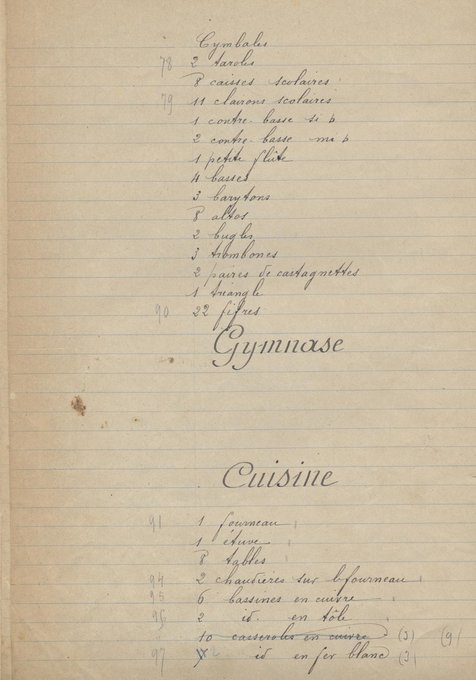 Cymbales
78 2 taroles
8 caisses scolaires
79 11 clairons scolaires
1 contre-basse si b
2 contre basse mi b
1 petite flûte
4 basses
3 barytons
8 altos
2 bugles
3 trombones
2 paires de castagnettes
1 triangle
90 22 fifres
Gymnase
Cuisine
91 1 fourneau
1 étuve
8 tables
94 2 chaudières sur le fourneau
95 6 bassines en cuivre
96 2 id. en tôle
10 casseroles en cuivre (3) (9)
97 2 id en fer blanc (3)